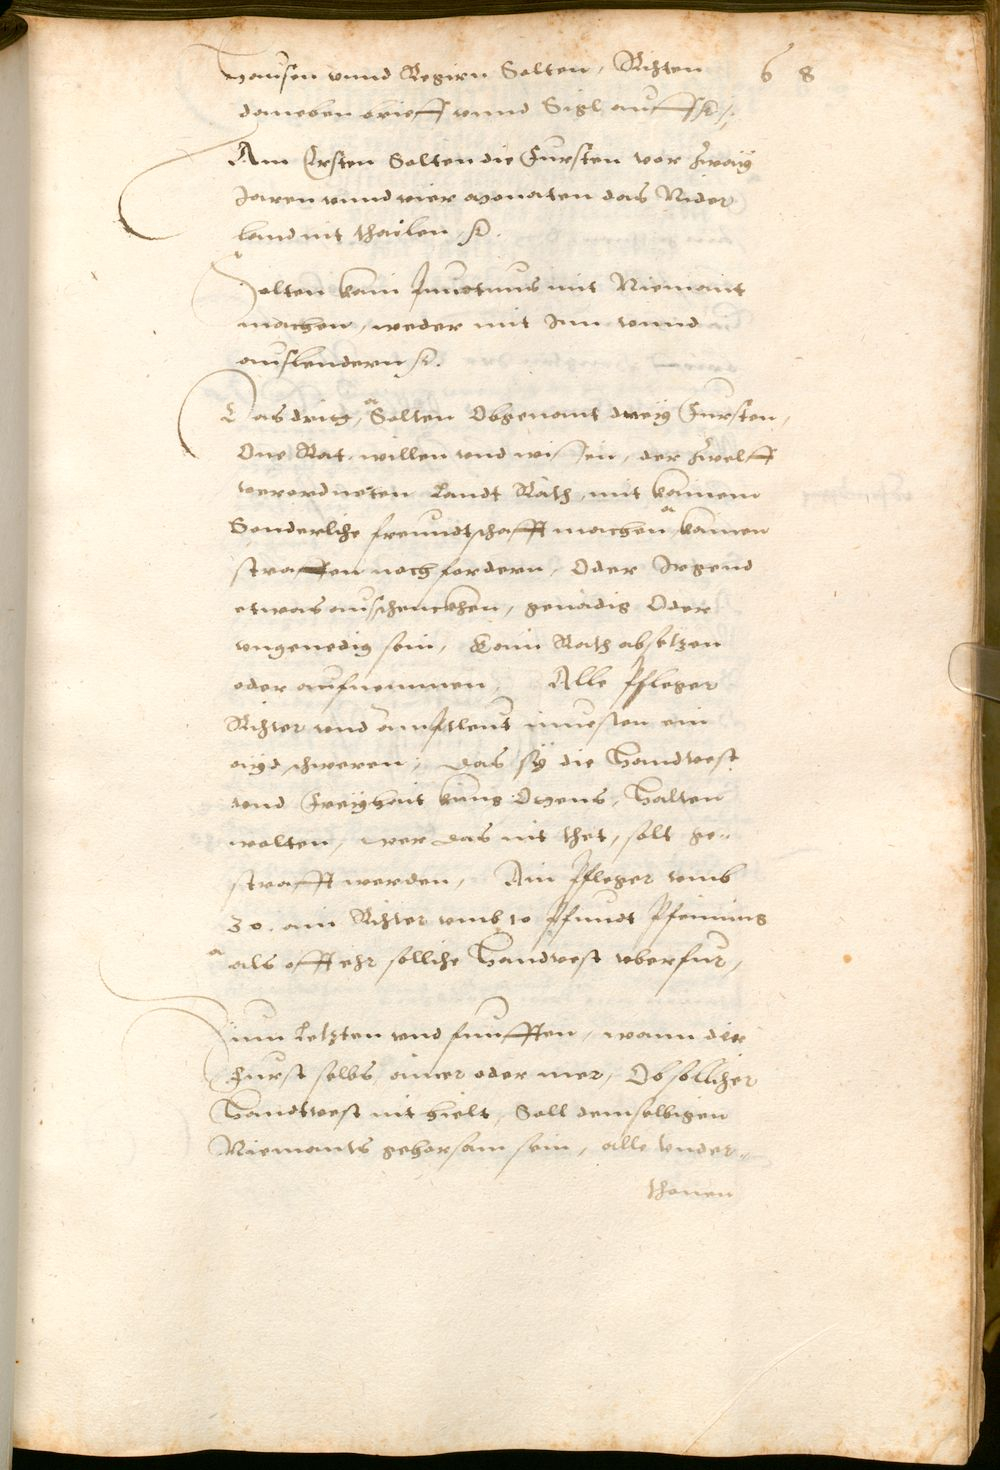 hausen vnnd Regirn Solten, Richten 68
daneben brieff vnnd Sigl auff etc.
Am Ersten Solten die Fursten vor zway
Jaren vnnd vier monaten das Nider
land nit thailen etc.
Solten kain pundtnus mit Niemant
machen, weder mit Inn vnnd
auslendern etc.
Das drit, Solten Obgenant dreÿ Fursten,
One Rat, willen vnd wissen, der zwelff
verordneten Landt Räth, mit kainem
Sonderliche freundtschafft machen, kainen
straffen noch fordern, Oder Irgend
etwas ausschenckhen, genädig Oder
vngenedig sein, Kain Rath absetzen
oder aufnemmen, Alle Pfleger
Richter vnd ambtleut muesten ein
aÿd schweren, das sÿ die Handtvest
vnd Freÿhait künig Otens, Halten
wolten, wer das nit thet, solt ge-
strafft werden, Ain Pfleger vmb
30. ain Richter vmb 10 Pfundt Pfenning
als offt ehr solliche Handvest vberfur,
Zum Letzten vnd funfften, wann der
Furst selbs, ainer oder mer, Ob sollicher
Handtvest nit hielt, Soll demselbigen
Niemants gehorsam sein, alle vnder-
thanen